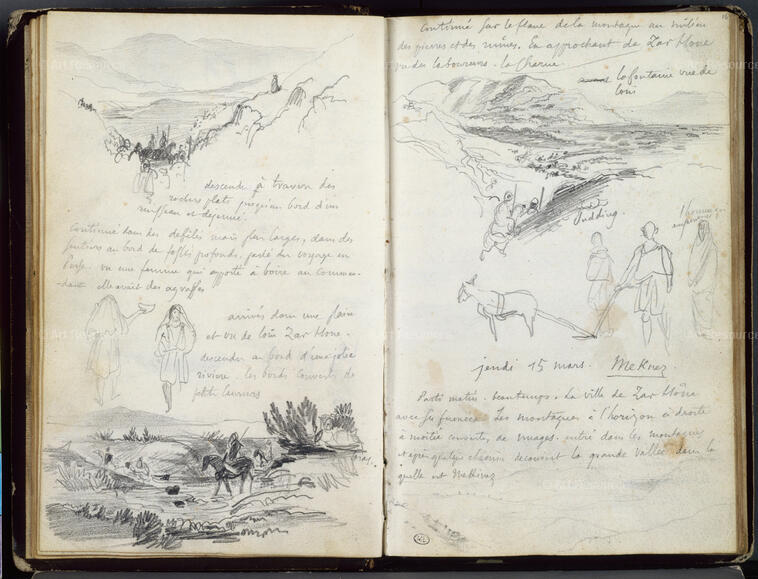 descendu à travers des
rochers plats jusqu'au bord d'un
ruisseau et déjeuné.
Continué dans des défilés mais plus larges, dans des
sentiers au bord de fossés profonds, parlé du voyage en
Perse. vu une femme qui apporté à boire au Comman-
-dant elle avait des agraffes
arrivés dans une plaine
et vu de loin Zar Hone.
descendu au bord d'une jolie
rivière. les bords couverts de
petits lauriers
16
Continué sur le flanc de la montagne au milieu
des pierres et des ruines. En approchant de Zar Hone
vu des laboureurs. la charue.
la fontaine vue de
loin
Pudding
jeudi 15 mars. Meknez
Parti matin. beau temps. La ville de Zar Hône
avec ses fumées. Les montagnes à l'horizon à droite
à moitié couvertes de nuages. entré dans les montagnes
et après quelque chemin découvert la grande vallée dans la
quelle est Meknez